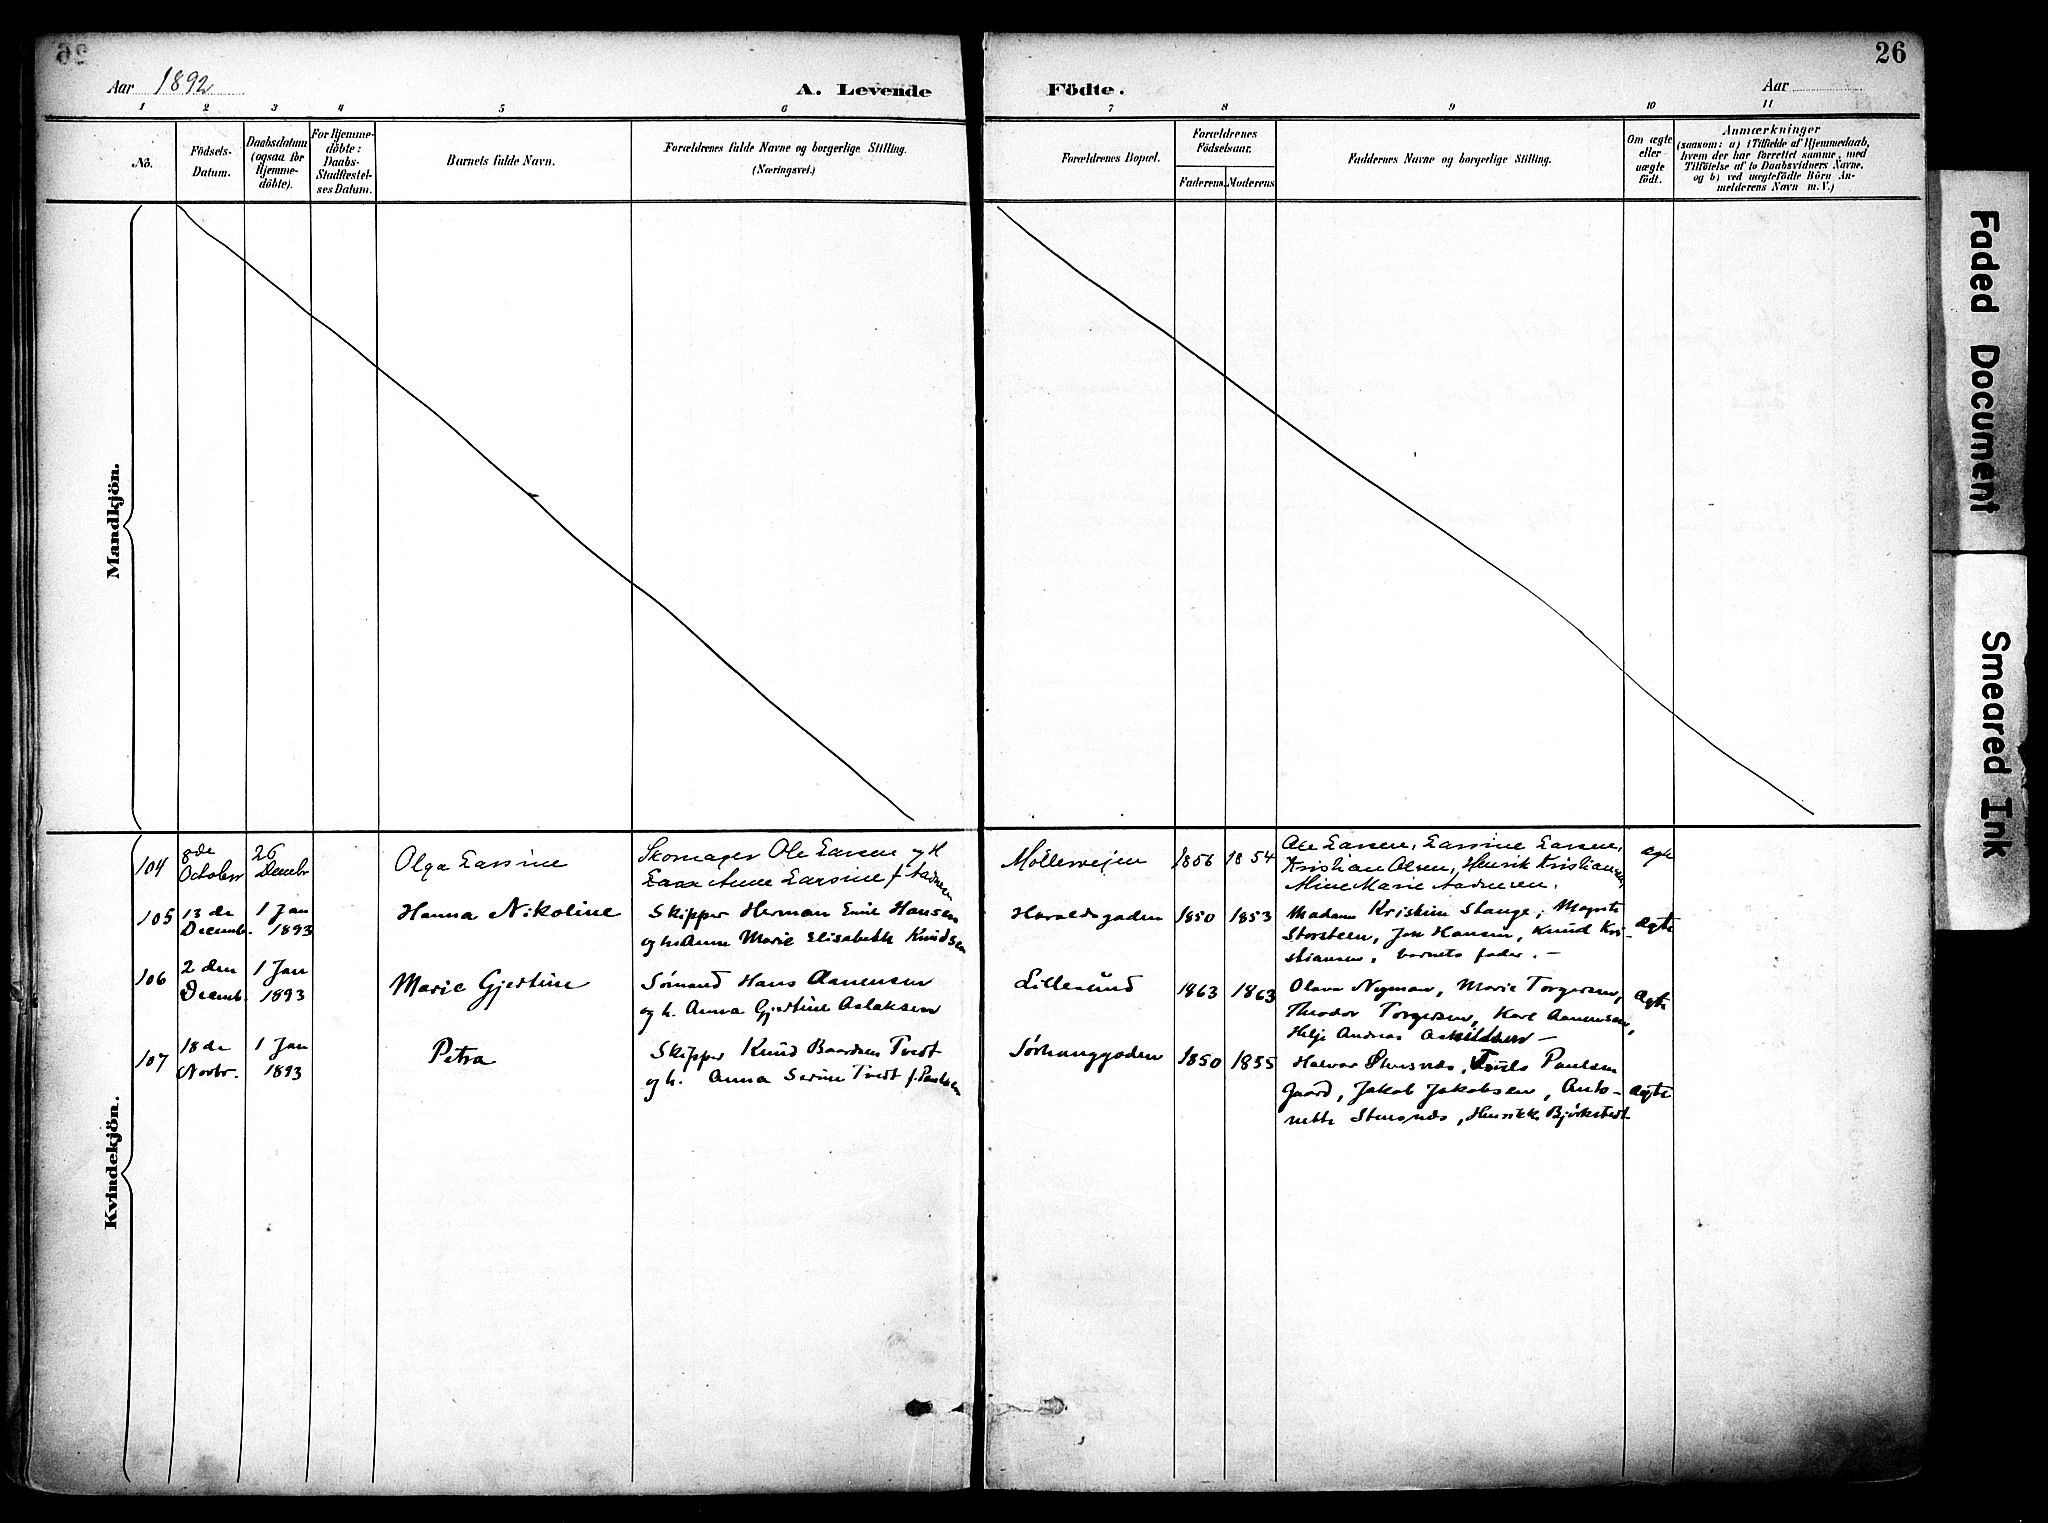 26
26
Aar 1892
A. Levende
Födte.
Aar
1 2 3 4 5 6 7 8 9 10 11
Nô.
Födsels-
Datum.
Daabsdatum
(ogsaa for
Hjemme-
döbte).
For Hjemme-
döbte:
Daabs-
Stadfæstel-
ses Datum.
Barnets fulde Navn.
Forældrenes fulde Navne og borgerlige Stilling.
(Næringsvei.)
Forældrenes Bopæl.
Forældrenes
Födselsaar.
Faderens.
Moderens.
Faddernes Navne og borgerlige Stilling.
Om ægte
eller
uægte
födt.
Anmærkninger
(saasom: a) i Tilfælde af Hjemmedaab,
hvem der har forrettet samme, med
Tilföielse af to Daabsvidners Navne,
og b) ved uægtefödte Börn An-
melderens Navn m. V.)
Mandkjön.
Kvindekjön.
104
8de
October
26
Decembr
Olga Larsine
Skomager Ole Larsen og H
Anne Larsine f.
Møllerveien
1856
1854
Ole Larsen, Larsine Larsen,
Kristian Olsen, Henrik Kristiansen,
Aline Marie
Ægte
105
13 de
Decemb.
1 Jan
1893
Hanna Nikoline
Skipper Herman Emil Hansen
og h. Anne Marie Elisabeth Knudsen
Haraldsgaden
1850
1853
Madam Kristine Stange,
Storsteen, Hansen, Knud Kri-
stiansen, barnets fader. —
Ægte
106
2 den
Decemb.
1 Jan
1893
Marie Gjertine
Sømand Hans Aanensen
og h. Anna Gjertine Aslaksen
Lillesund
1863
1863
Olava Nyman, Marie Torgersen,
Theodor Torgersen, Karl Aanensen,
Helje Andreas Askildsen —
Ægte
107
18 de
Novbr.
1 Jan
1893
Petra
Skipper Knud Baardsen Tvedt
og h. Anna Serine Tvedt f. Paulsen
Sørhauggaden
1850
1855
Halvor Stursnæs, Truls Paulsen
Gaard, Jakob Jakobsen, Anto-
nette Stursnæs, Henrikke Bjørkstedt
Ægte
Faded Document
Smeared Ink